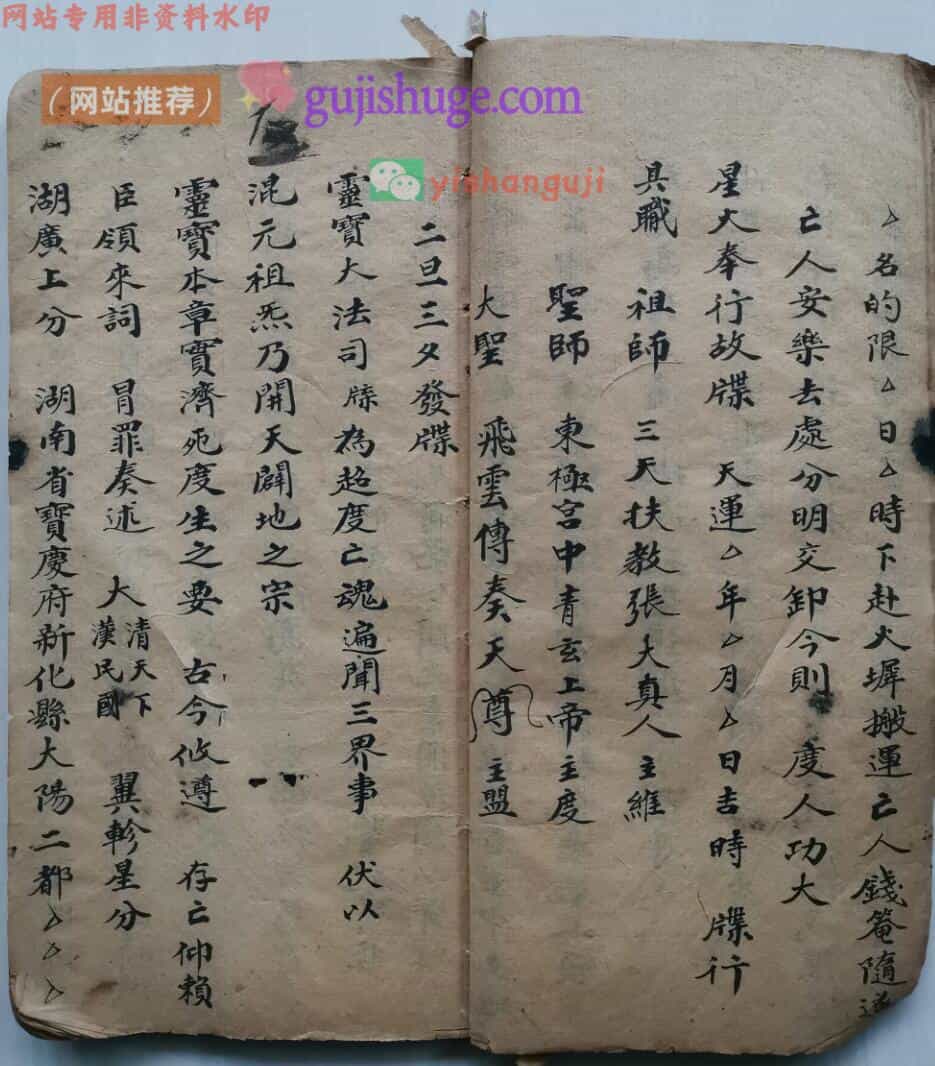 网站专用非资料水印
（网站推荐）
gujishuge.com
yishanguji
厶名的限厶日厶時下赴火墀搬運亡人錢菴隨送
亡人安樂去處分明交卸今則 度人功大
星火奉行故牒 天運厶年厶月厶日吉時 牒行
具職 祖師 三天扶教張大真人 主維
聖師 東極宮中青玄上帝主度
大聖 飛雲傳奏天尊 主盟
二旦三夕發牒
靈寶大法司 牒 為超度亡魂遍聞三界事 伏以
混元祖炁乃開天闢地之宗
靈寶本章實濟死度生之要 古今攸遵 存亡仰賴
臣領來詞 冒罪奏述 大清天下漢民國 翼軫星分
湖廣上分 湖南省寶慶府新化縣大陽二都厶厶厶